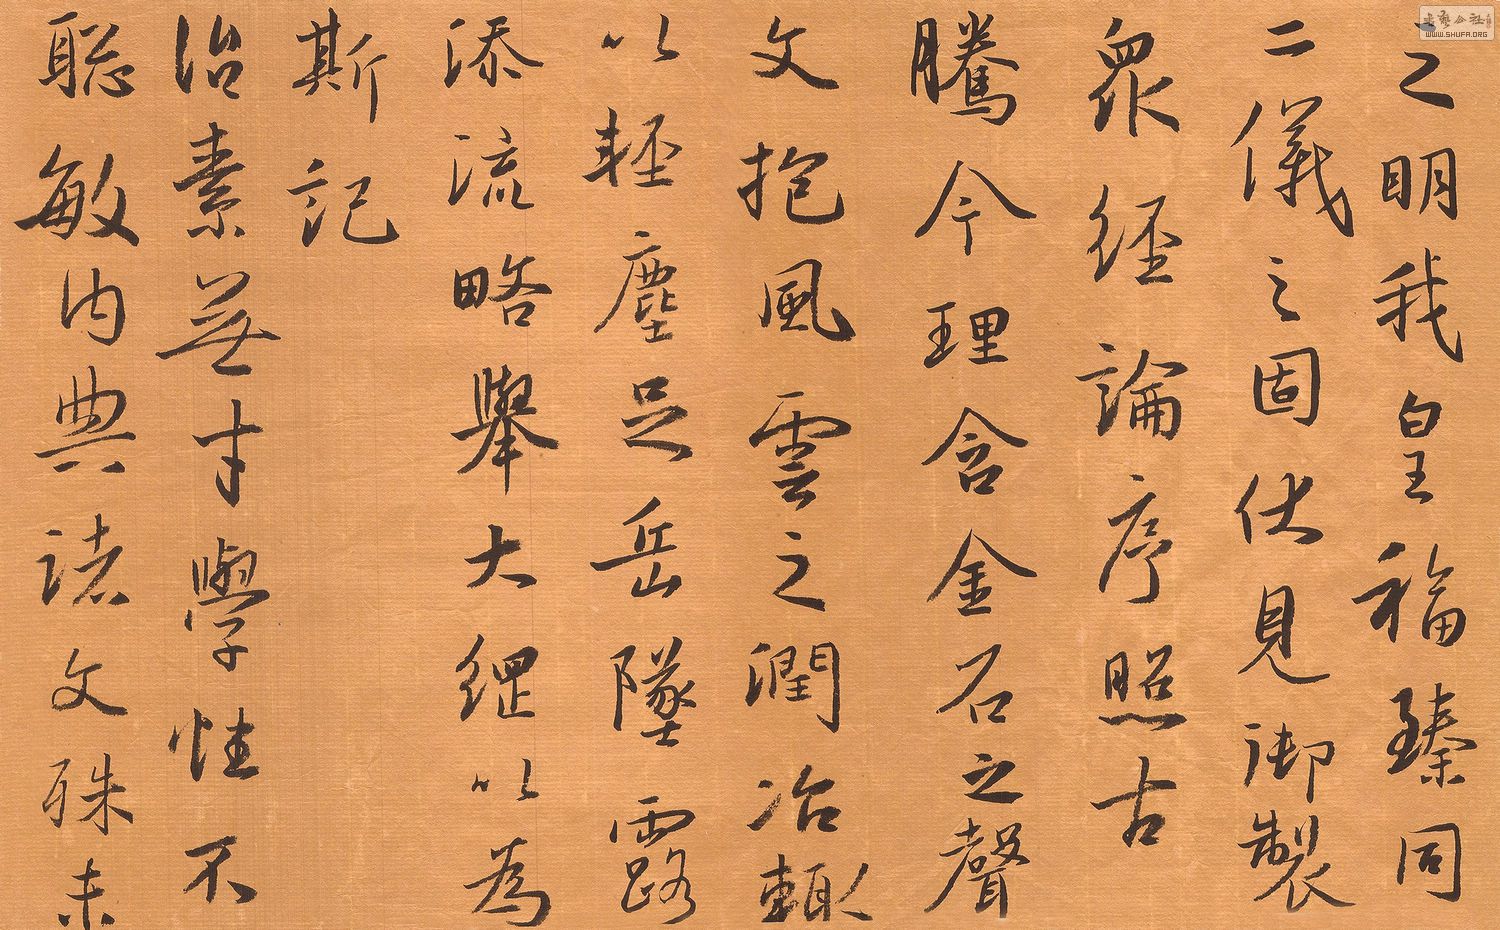 之明我皇福臻同
二儀之固伏見御製
衆經論序照古
騰今理含金石之聲
文抱風雲之潤治輒
以輕塵足岳墜露
添流略舉大綱以為
斯記
治素無才學性不
聰敏內典諸文殊未
书艺公社
WWW.SHUFA.ORG